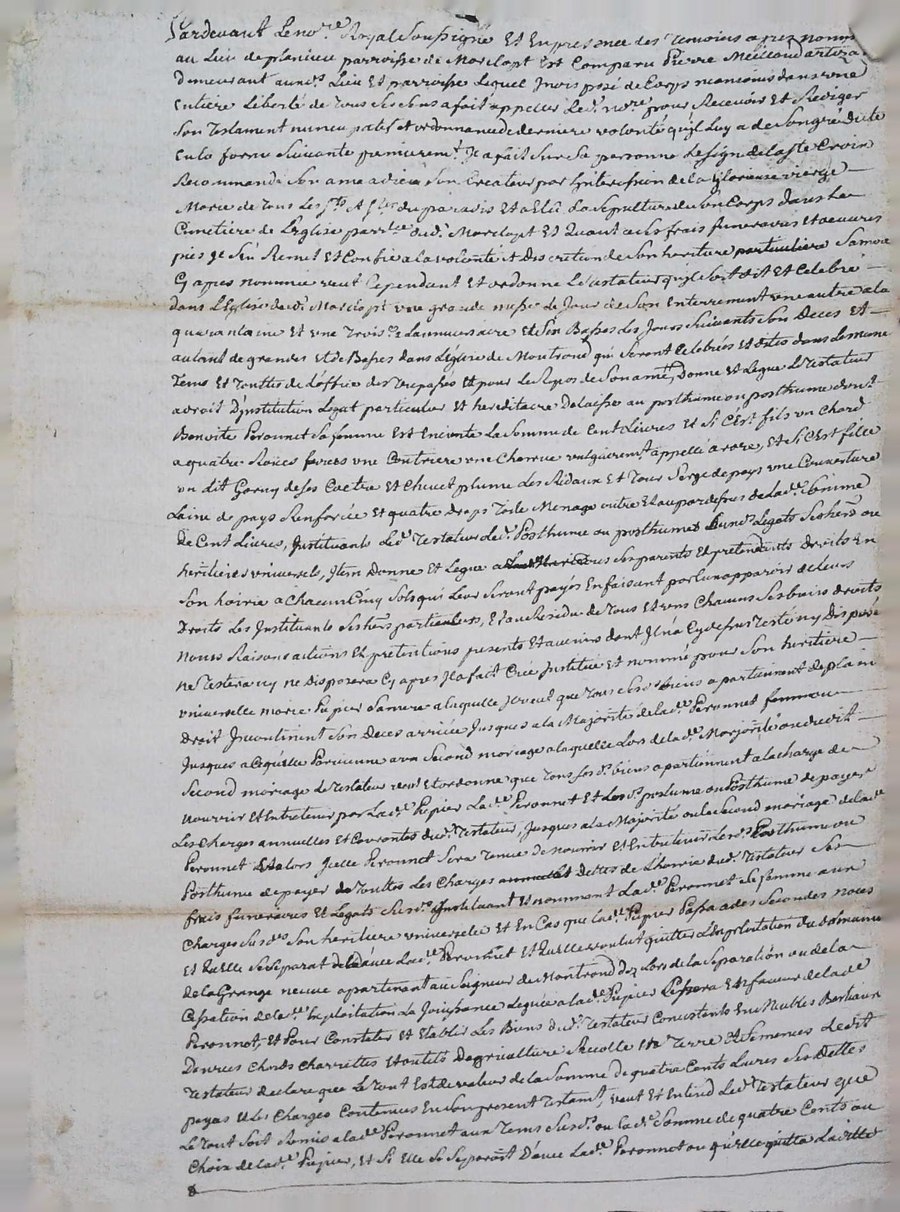 Pardevant Le nore Royal Soussigné Et En presence des Temoins apres nommés
au Lieu de planieu parroisse de Marclopt Est Comparu Pierre Meilland artiza
demeurant aund. Lieu Et parroisse Lequel Indisposé de Corps neanmoins dans une
Entiere Liberté de Tous Ses Sens a fait appeller Led. nore pour Recevoir et Rediger
Son Testament nuncupatif et ordonnance de derniere volonté qu'il Luy a de Son gré dicté
En la forme Suivante premieremt. Il a fait Sur Sa personne Le Sign de la Ste Croix
Recommandé Son ame a dieu Son Createur par L'intercession de la Glorieuse vierge
Marie de Tous Les Sts & Stes du paradis Et a Elû La Sepulture de Son Corps dans Le
Cimetiere de L'Eglise parrlle dud. Marclopt Et Quant a Ses frais funeraires Et oeuvres
pies Il S'en Remet Et Confie a la volonté et discretion de Son heritiere particuliere Sa mere
Cy apres nommée veut Cependant Et ordonne Le testateur qu'il Soit dit Et Celebré
dans L'Eglise dud. Marclopt une grande messe Le Jour de Son Enterrement une autre a la
quarantaine Et une Troise. a L'anniversaire Et Six Basses Les Jours Suivants Son Deces Et
autant de grandes et de Basses dans L'Eglise de Montrond qui Seront Celebrées Et dites dans Le meme
Tems Et Touttes de L'office des Trepassés Et pour Le Repos de Son ame, Donne Et Legue Le Testateur
a droit D'institution Legat particulier Et hereditaire Delaisse au posthume ou posthume dont
Benoite Peronnet Sa femme Est Enceinte La Somme de Cent Livres Et Si C'Est fils un Chard
a quatre Roües ferrés une Coutriere une Charrue vulgairemt. appellé arare, Et Si C'Est fille
un Lit Garny de Ses Coetre Et Chevet plume Les Ridaux Et Tour Serge de pays une Couverture
Laine de pays Renforcée Et quatre Draps Toile Menage outre Et au pardessus de Lade. Somme
De Cent Livres, Instituants Led. Testateur Led. Posthume ou posthume Susd. Legats Ses hers ou
heritieres universels, Item Donne Et Legue a Tous Ses parents Et pretendants droits En
Son hoirie a Chacun Cinq Sols qui Leur Seront payés En faisant par Eux apparoir de Leurs
Droits Les Instituants Ses hers particuliers, Et au Residu de Tous Et uns Chacuns Ses biens droits
Noms Raisons actions Et pretentions presents Et avenirs dont Il n'a Cy dessus Testé ny Disposé
ne Testera ny ne Disposera Cy apres Il a fait Crée Institué Et nommé pour Son heritiere
universelle marie Pupier Sa mere a laquelle Il veut que Tous Ses Biens apartiennent de plain
Droit Incontinent Son Deces arrivée Jusques a la Majorité de Lade. Peronnet femme ou
Jusques a Ce qu'Elle Parvienne a un Second mariage a laquelle Lors de Lade. Majorité ou dudit
Second mariage Le Testateur veut Et ordonne que Tous Sesd. biens apartiennent a la charge de
nourrir Et Entretenir par Lade. Pupier Lade. Peronnet Et Lesd. postume ou Posthume de payer
Les Charges annuelles Et Courantes dud. Testateur, Jusques a la Majorité ou Le Second mariage de Lade
Peronnet Et alors Icelle Peronnet Sera Tenue de Nourrir Et Entretenir Lesd. Posthume ou
Posthume de payer Touttes Les Charges Dettes de L'hoirie dud. Testateur Ses
frais funeraires Et Legats Susd. Instituant Et nommant Lade. Peronnet Sa femme aux
Charges Susdes Son heritiere universelle Et En Cas que Lade. Pupier Passa a des Secondes noces
Et Qu'elle Se Separat D'avec Lade. Peronnet Et Qu'elle voulut quitter L'exploitation du domaine
de la Grange neuve apartenant au Seigneur de Montrond Dez Lors de la Separation ou de la
Cessation de Lade. Exploitation La Jouissance Leguée a Lade. Pupier Cessera Et En faveur de Lade
Peronnet, Et Pour Constater Et Etablir Les Biens dud. Testateur Consistants En Meubles Bestiaux
Danrées Chards Charrettes Et outils D'agriculture Recolte En Terre Et Semences Ledit
Testateur declare que Le Tout Est de valeur de la Somme de quatre Cents Livres Ses Dettes
payés Et Les Charges Contenues En Son present Testamt, veut Et Entend Led. Testateur que
Le Tout Soit Remis a Lade Peronnet aux Tems Susd. ou Lade. Somme de quatre Cents au
Choix de Lade. Pupier, Et Si Elle Se Separoit D'avec Lade. Peronnet ou qu'elle quitta